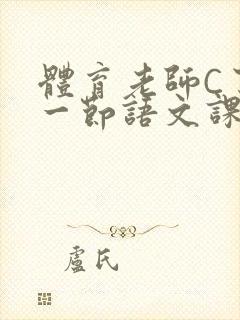 體育老師C
一節語文課
盧氏